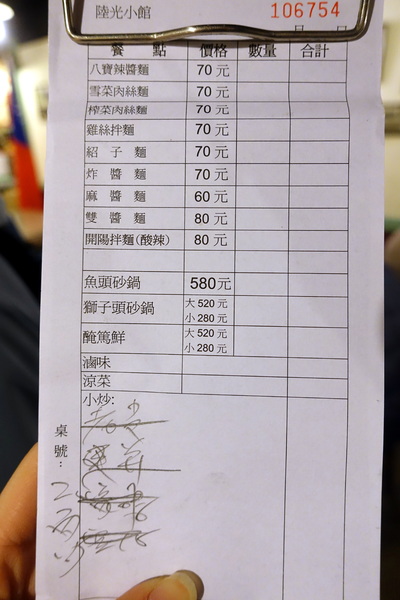 陸光小館
106754
月 日
餐 點 價格 數量 合計
八寶辣醬麵 70元
雪菜肉絲麵 70元
榨菜肉絲麵 70元
雞絲拌麵 70元
紹子麵 70元
炸醬麵 70元
麻醬麵 60元
雙醬麵 80元
開陽拌麵(酸辣) 80元
魚頭砂鍋 580元
獅子頭砂鍋 大520元
小280元
醃篤鮮 大520元
小280元
滷味
涼菜
小炒:
桌號: